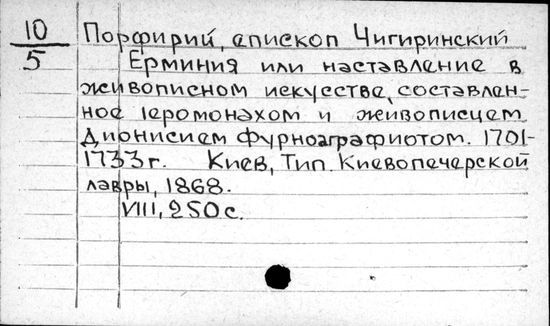 10
5
Порфирий, епископ Чигиринский
Ерминия или наставление в
живописном искусстве, составлен-
ное іеромонахом и живописцем
Дионисием Фурноаграфиотом. 1701-
1733 г. Киев, Тип. Киевопечерской
лавры, 1868.
VIII, 250 с.